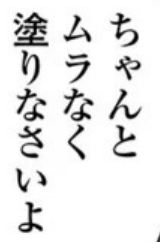 ちゃんと
ムラなく
塗りなさいよ